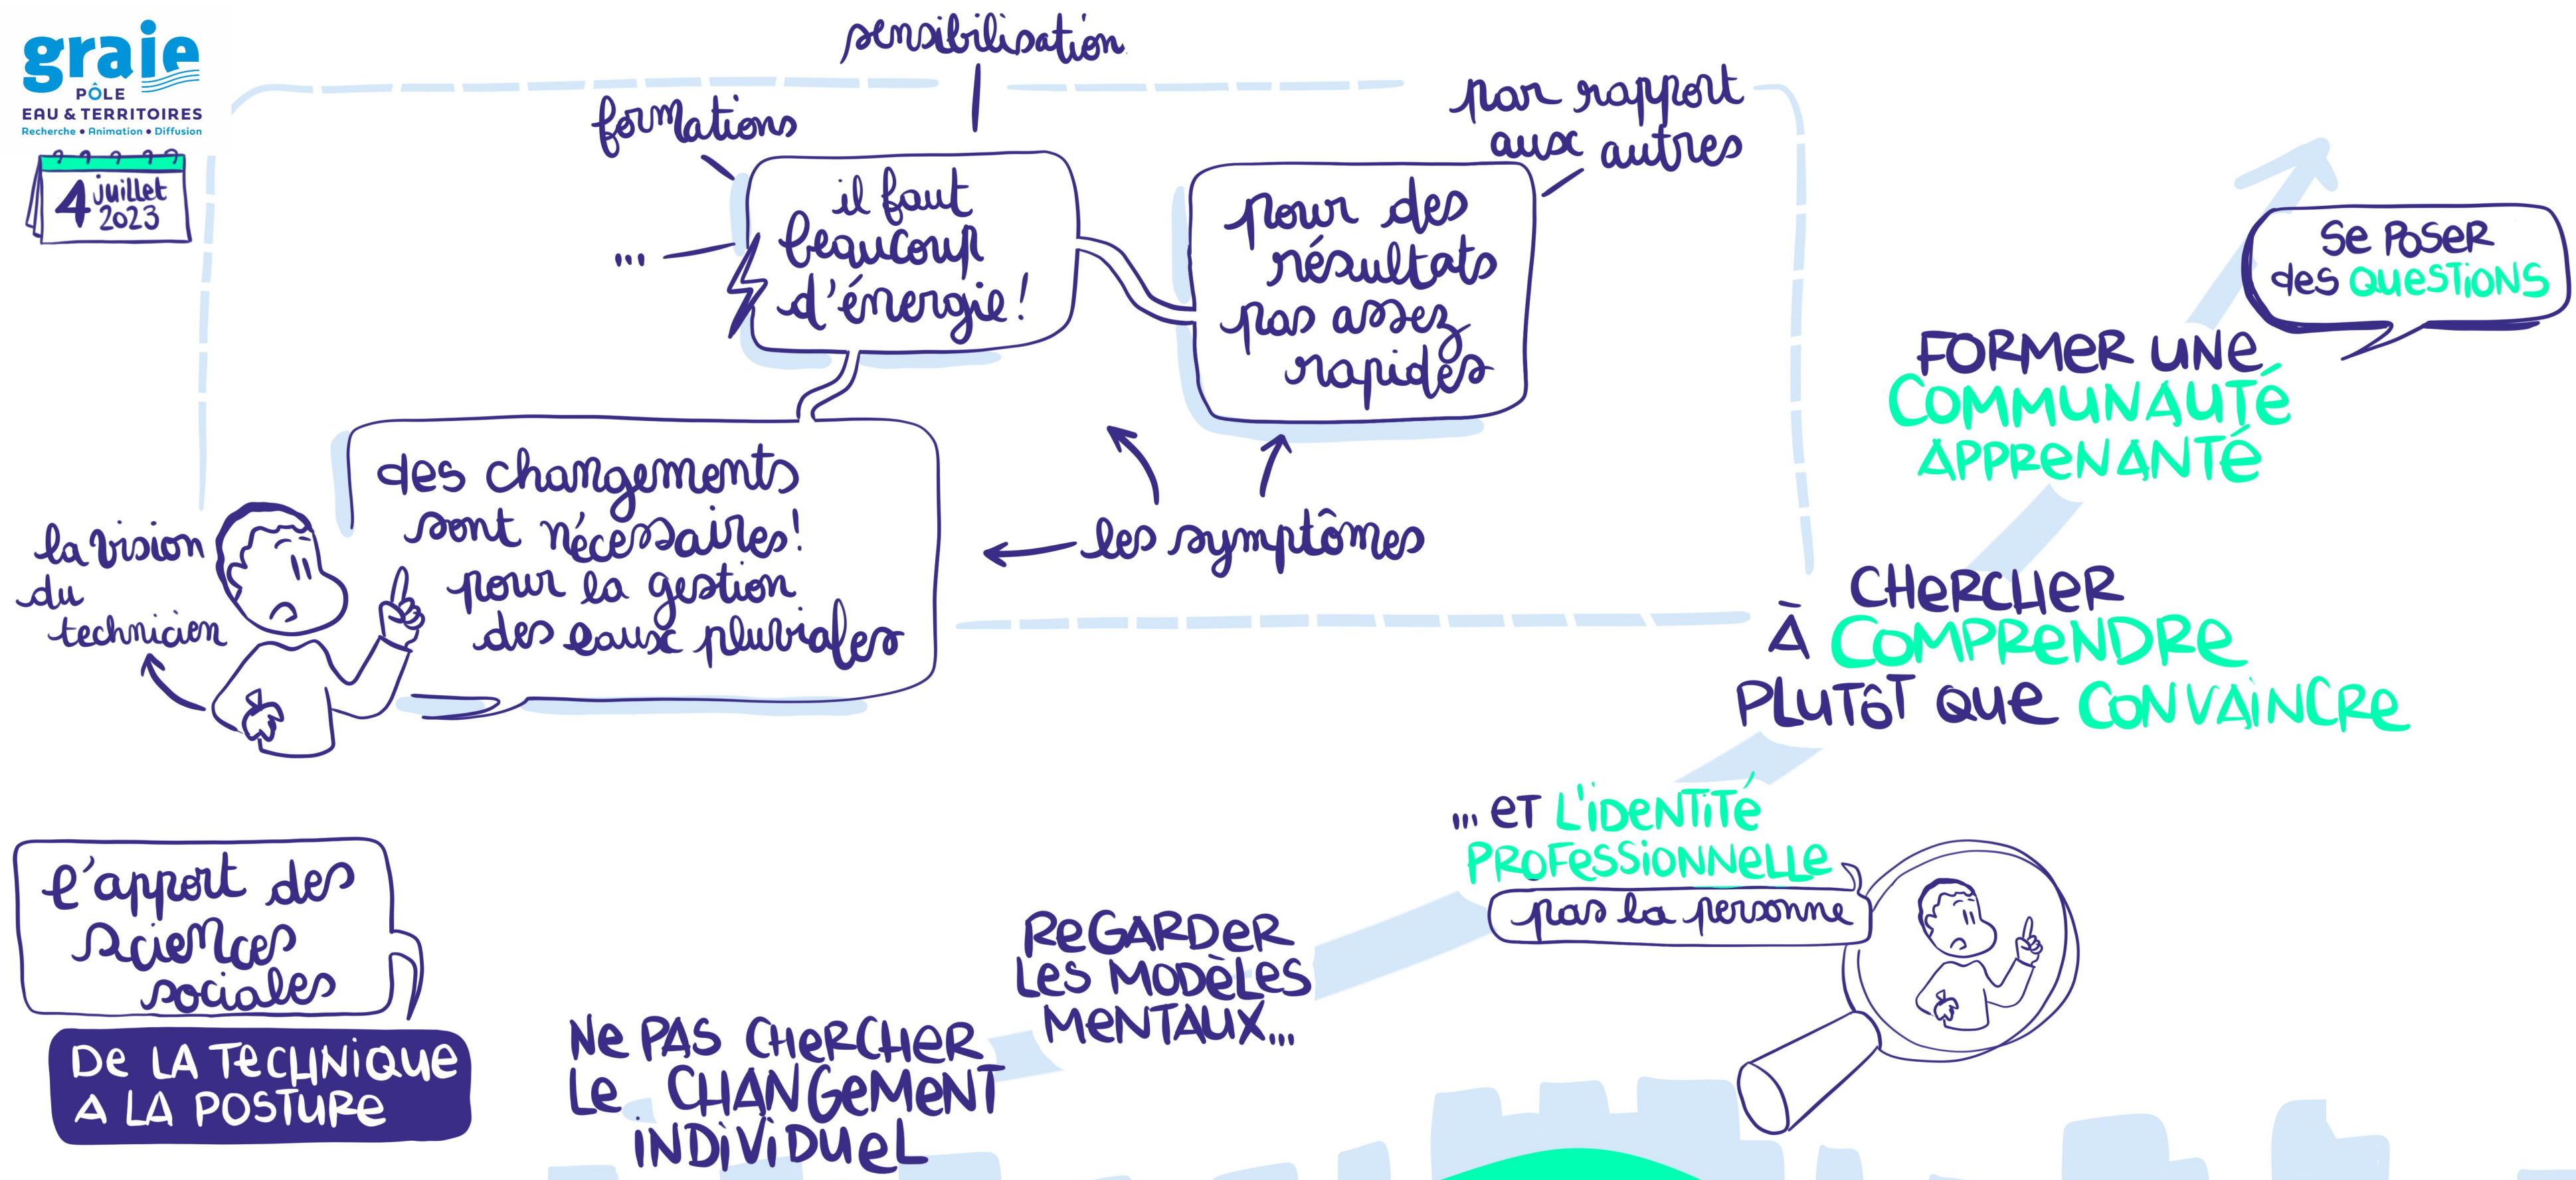 graie
PÔLE
EAU & TERRITOIRES
Recherche • Animation • Diffusion
4 juillet
2023
sensibilisation
formations
...
il faut
beaucoup
d'énergie!
par rapport
aux autres
pour des
résultats
pas assez
rapides
des changements
sont nécessaires!
pour la gestion
des eaux pluviales
les symptômes
la vision
du
technicien
l'apport des
sciences
sociales
De LA TeCHNiQue
A LA POSTURe
Ne PAS CHeRCHeR
Le CHANGeMeNT
iNDiViDUeL
ReGARDeR
Les MODèLes
MeNTAUX...
... eT L'iDeNTiTé
PROFessiONNeLLe
pas la personne
CHeRCHeR
À COMPReNDRe
PLUTôT QUe CONVAiNCRe
FORMeR UNe
COMMUNAUTé
APPReNANTé
Se POSeR
des QUeSTiONS